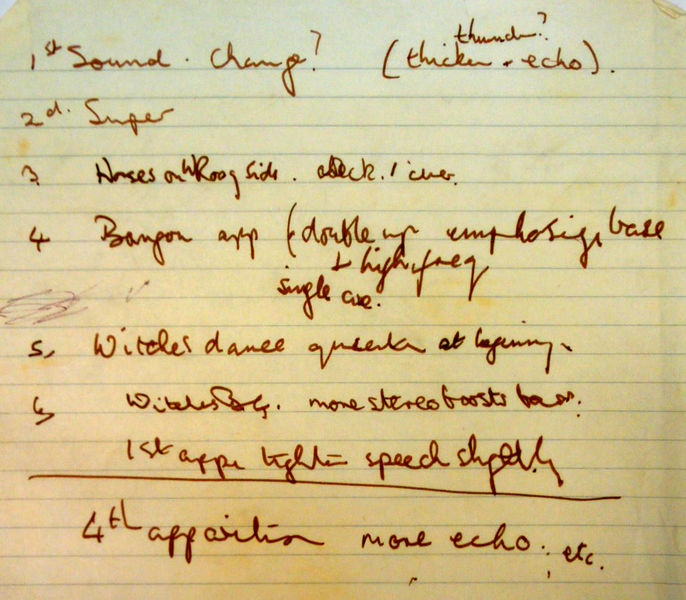 thunder?
1st Sound. Change? (thicker + echo).
2nd. Super
3 Horses on wRong side. check. 1 cue.
4 app (double up emphasize base
+ high freq
single cue.
5, Witches dance quieter at beginning.
6, Witches more stereo boost bass.
1st app. tighten speech slightly
4th apparition more echo. etc.